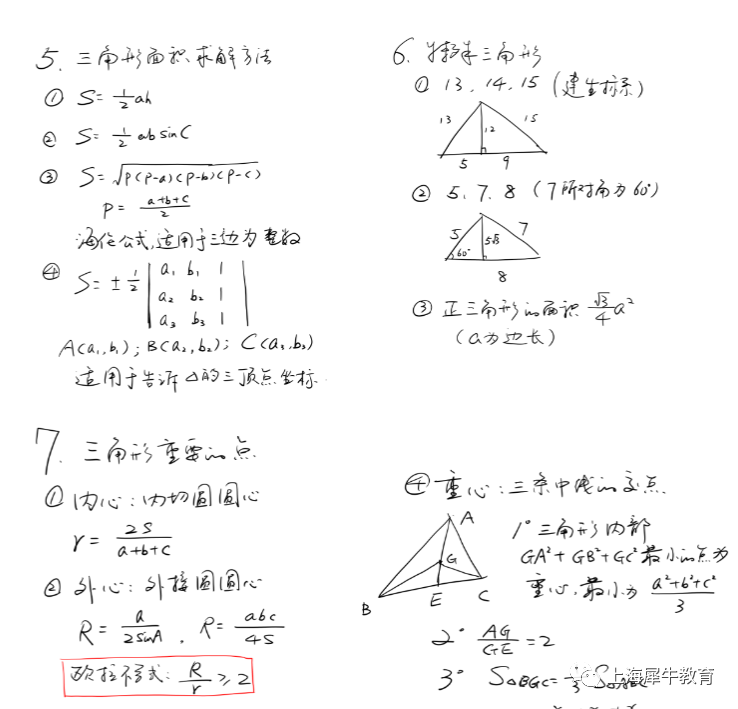 5. 三角形面积求解方法
① S=½ah
② S=½absinC
③ S=√P(P-a)(P-b)(P-c)
P=(a+b+c)/2
海伦公式,适用于三边为整数
④ S=±½|a₁ b₁ 1|
|a₂ b₂ 1|
|a₃ b₃ 1|
A(a₁,b₁); B(a₂,b₂); C(a₃,b₃)
适用于告诉△的三顶点坐标.
6. 特殊三角形
① 13、14、15 (建坐标系)
13 12 15
5 9
② 5、7、8 (7所对角为60°)
5 7
60° 
8
③ 正三角形的面积 √3/4 a²
(a为边长)
7. 三角形重要的点
① 内心:内切圆圆心
r=2S/(a+b+c)
② 外心:外接圆圆心
R=a/2sinA , R=abc/4S
欧拉不等式: R/r≥2
④ 重心:三条中线的交点.
A
G
B E C
1° 三角形内部
GA²+GB²+GC²最小的点为
重心,最小为 (a²+b²+c²)/3
2° AG/GE=2
3° S△BGC=⅓S△ABC
上海犀牛教育